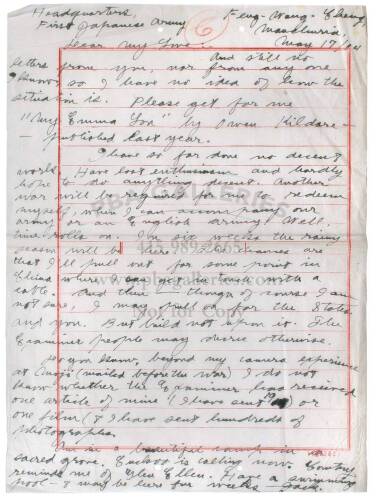 Headquarters, Feng-Wang-Cheng,
First Japanese Army 6 Manchuria
May 17, 04
Dear My Love:
And still no
letters from you, nor from any one
so I have no idea of how the
situation is. Please get for me
"My Mamie Rose" by Owen Kildare—
published last year.
I have so far done no decent
work. Have lost enthusiasm and hardly
hope to do anything decent. Another
war will be required for me to redeem
myself, when I can accompany our
army or an English army. Well,
time rolls on. In six weeks the rainy
season will be here. The chances are
that I'll pull out for some point in
China where I can get in touch with a
cable. And then, though of course I am
not sure, I may pull on for the States
and you. But build not upon it. The
Examiner people may decree otherwise.
Do you know, beyond my camera experience
at (mailed before the war) I do not
know whether the Examiner has received
one article of mine (I have sent 19) or
one film (& I have sent hundreds of
photographs
I'm in a beautiful camp in
sacred grove. Cuckoo is calling now.
reminds me of Glen Ellen. Have a swimming
pool—I may be here for weeks. Jack.
PBA GALLERIES
415.989.2665
www.pbagalleries.com
Not for Copy